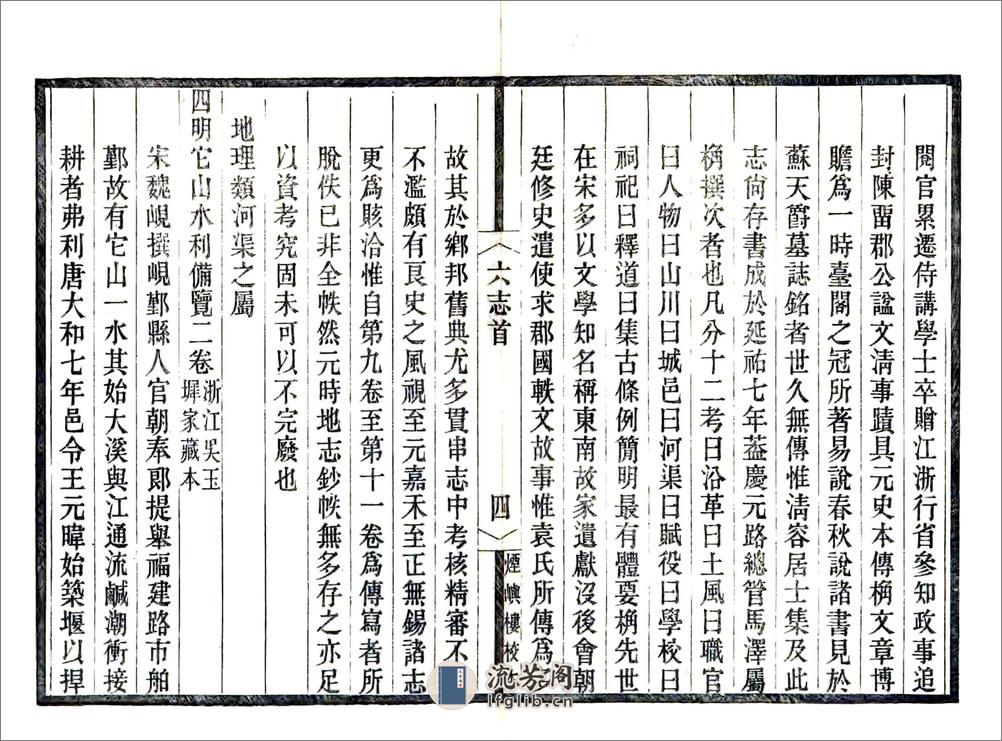 閱官累遷侍講學士卒贈江浙行省參知政事追
封陳畱郡公諡文淸事蹟具元史本傳桷文章博
贍爲一時臺閣之冠所著易說春秋說諸書見於
蘇天爵墓誌銘者世久無傳惟淸容居士集及此
志尙存書成於延祐七年葢慶元路總管馬澤屬
桷撰次者也凡分十二考曰沿革曰土風曰職官
曰人物曰山川曰城邑曰河渠曰賦役曰學校曰
祠祀曰釋道曰集古條例簡明最有體要桷先世
在宋多以文學知名稱東南故家遺獻沒後會朝
廷修史遣使求郡國軼文故事惟袁氏所傳爲
六志首
四
煙嶼樓校
故其於鄉邦舊典尤多貫串志中考核精審不
不濫頗有良史之風視至元嘉禾至正無錫諸志
更爲賅洽惟自第九卷至第十一卷爲傳寫者所
脫佚已非全帙然元時地志鈔帙無多存之亦足
以資考究固未可以不完廢也
地理類河渠之屬
四明它山水利備覽二卷浙江吳玉
墀家藏本
宋魏峴撰峴鄞縣人官朝奉郞提舉福建路市舶
鄞故有它山一水其始大溪與江通流鹹潮衝接
耕者弗利唐大和七年邑令王元暐始築堰以捍
流芳阁
lfglib.cn